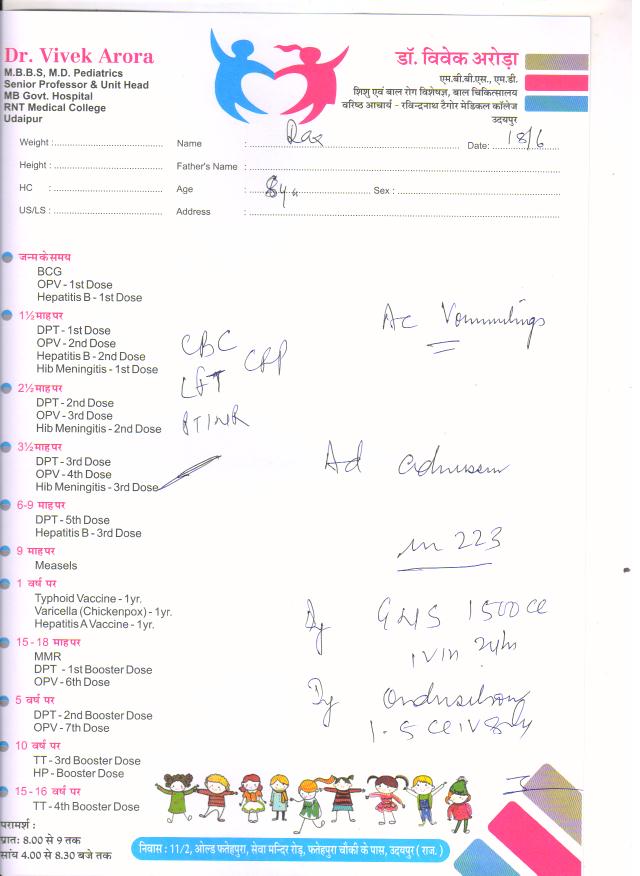 Dr. Vivek Arora
M.B.B.S, M.D. Pediatrics
Senior Professor & Unit Head
MB Govt. Hospital
RNT Medical College
Udaipur
डॉ. विवेक अरोड़ा
एम.बी.बी.एस., एम.डी.
शिशु एवं बाल रोग विशेषज्ञ, बाल चिकित्सालय
वरिष्ठ आचार्य - रविन्द्रनाथ टैगोर मेडिकल कॉलेज
उदयपुर
Weight : Name : Date: 18/6
Height : Father's Name :
HC : Age : Sex :
US/LS : Address :
जन्म के समय
BCG
OPV - 1st Dose
Hepatitis B - 1st Dose
1½ माह पर
DPT - 1st Dose
OPV - 2nd Dose
Hepatitis B - 2nd Dose
Hib Meningitis - 1st Dose
2½ माह पर
DPT - 2nd Dose
OPV - 3rd Dose
Hib Meningitis - 2nd Dose
3½ माह पर
DPT - 3rd Dose
OPV - 4th Dose
Hib Meningitis - 3rd Dose
6-9 माह पर
DPT - 5th Dose
Hepatitis B - 3rd Dose
9 माह पर
Measels
1 वर्ष पर
Typhoid Vaccine - 1yr.
Varicella (Chickenpox) - 1yr.
Hepatitis A Vaccine - 1yr.
15-18 माह पर
MMR
DPT - 1st Booster Dose
OPV - 6th Dose
5 वर्ष पर
DPT - 2nd Booster Dose
OPV - 7th Dose
10 वर्ष पर
TT - 3rd Booster Dose
HP - Booster Dose
15-16 वर्ष पर
TT - 4th Booster Dose
CBC
CRP
LFT
PTINR
Ac Vommitings
Ad admission
in 223
1500 CC
IV in 24hr
परामर्श :
प्रात: 8.00 से 9 तक
सांय 4.00 से 8.30 बजे तक
निवास : 11/2, ओल्ड फतेहपुरा, सेवा मन्दिर रोड़, फतेहपुरा चौकी के पास, उदयपुर ( राज. )